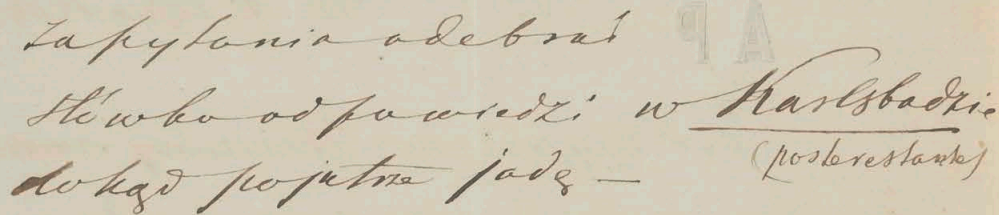 zapytania odebrać
słówko odpowiedzi w Karlsbadzie
(posterestante)
dokąd pojutrze jadę —